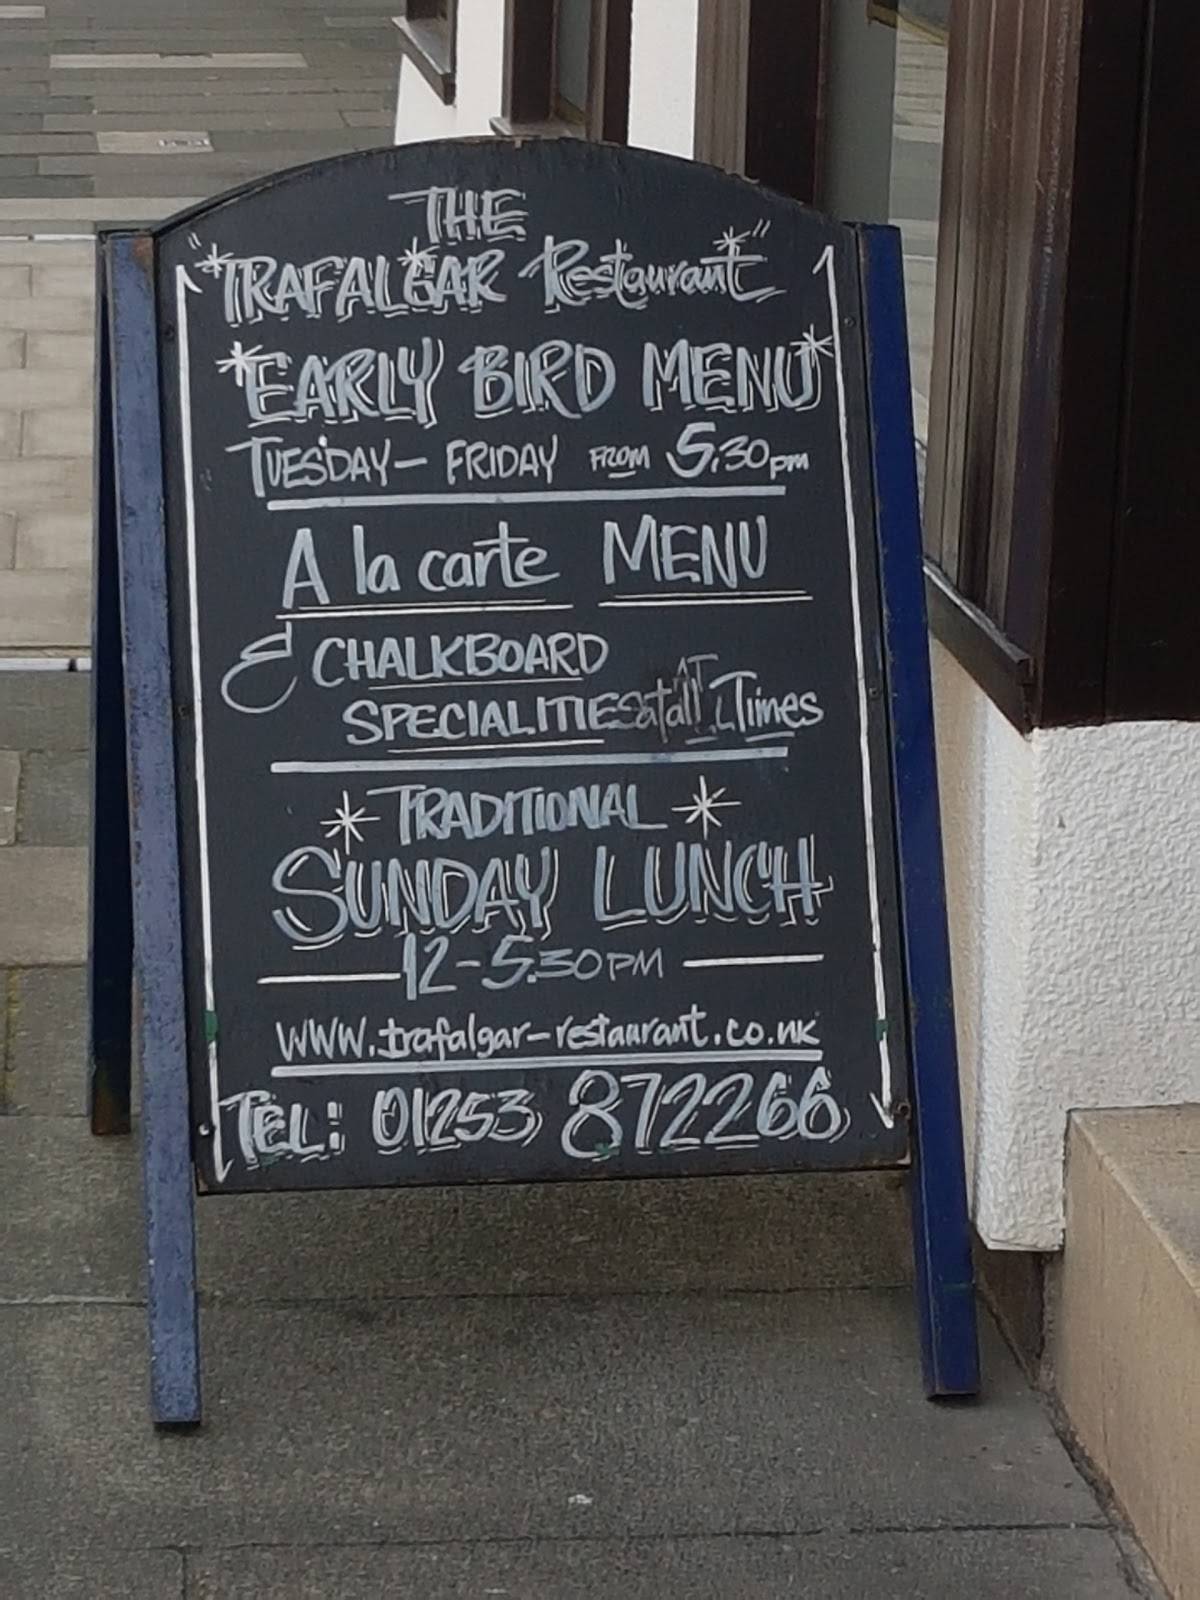 THE
"TRAFALGAR Restaurant"
EARLY BIRD MENU
TUESDAY - FRIDAY FROM 5.30pm
A la carte MENU
& CHALKBOARD
SPECIALITIES at all Times
TRADITIONAL
SUNDAY LUNCH
12-5.30PM
www.trafalgar-restaurant.co.uk
TEL: 01253 872266